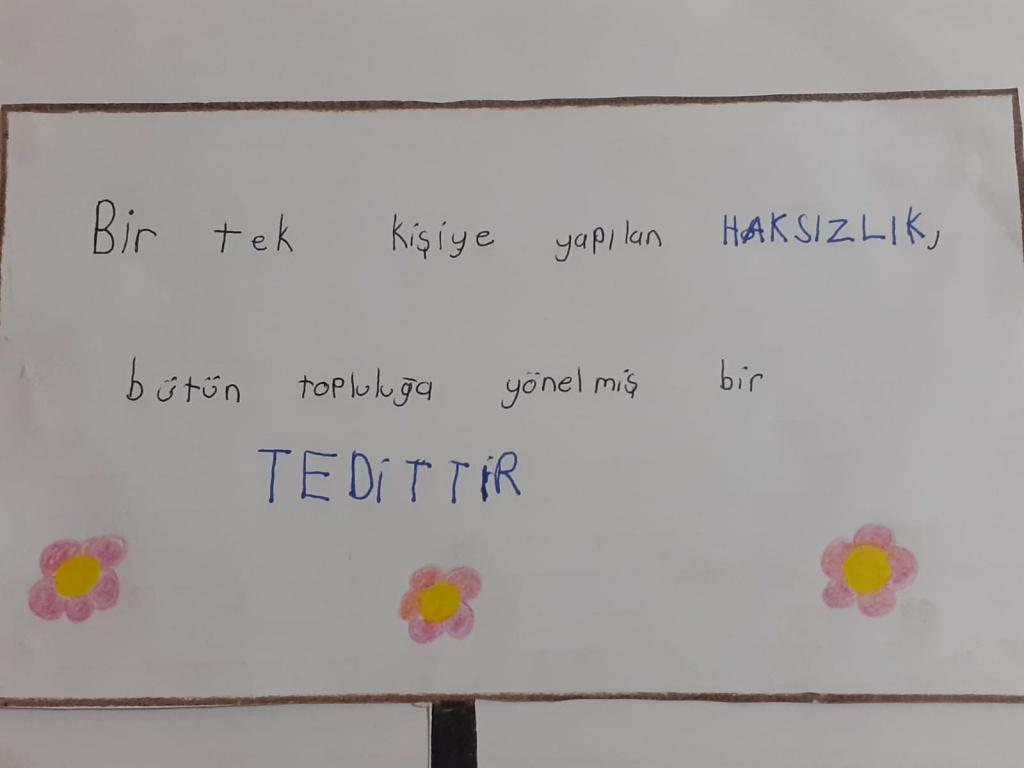 Bir tek kişiye yapılan HAKSIZLIK,
bütün topluluğa yönelmiş bir
TEDİTTİR